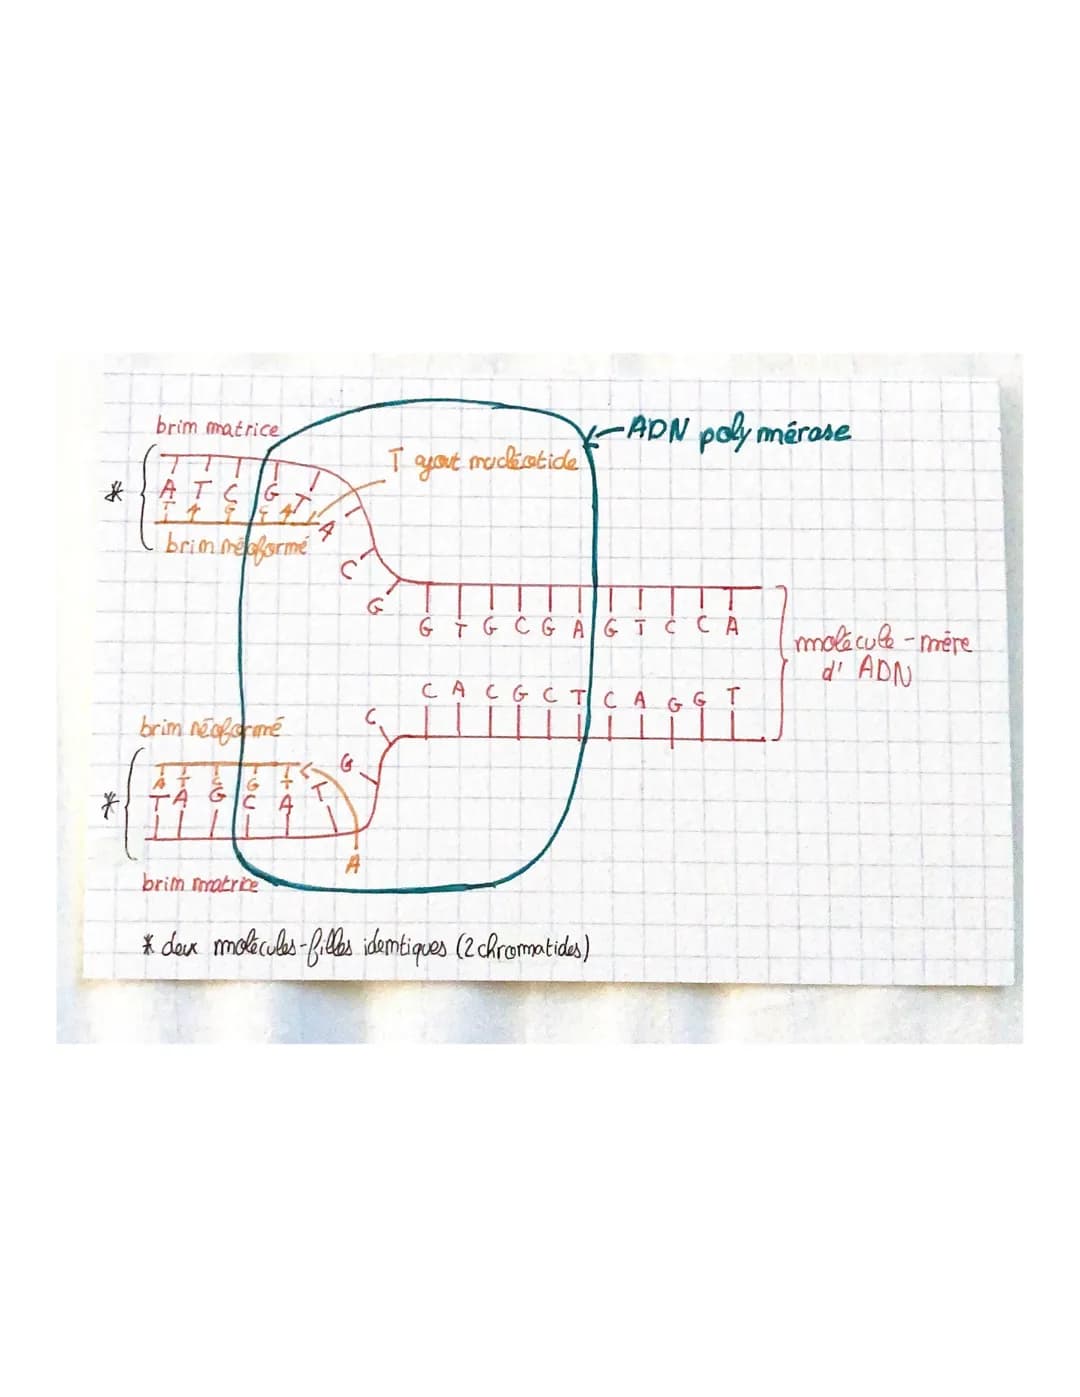 brin matrice
ADN polymérase
T ajout nucléotide
A T C G T
T A G C A
A
brin néoformé
C
G
G T G C G A G T C C A
molécule-mère
d'ADN
C A C G C T C A G G T
C
brin néoformé
G
A T C G T
T A G C A T
A
brin matrice
* deux molécules-filles identiques (2 chromatides)